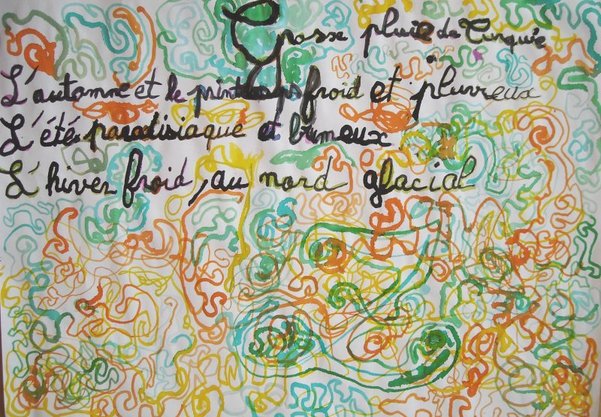 Grosse pluie de Turquie
L'automne et le printemps froid et pluvieux
L'été paradisiaque et brumeux
L'hiver froid, au nord glacial